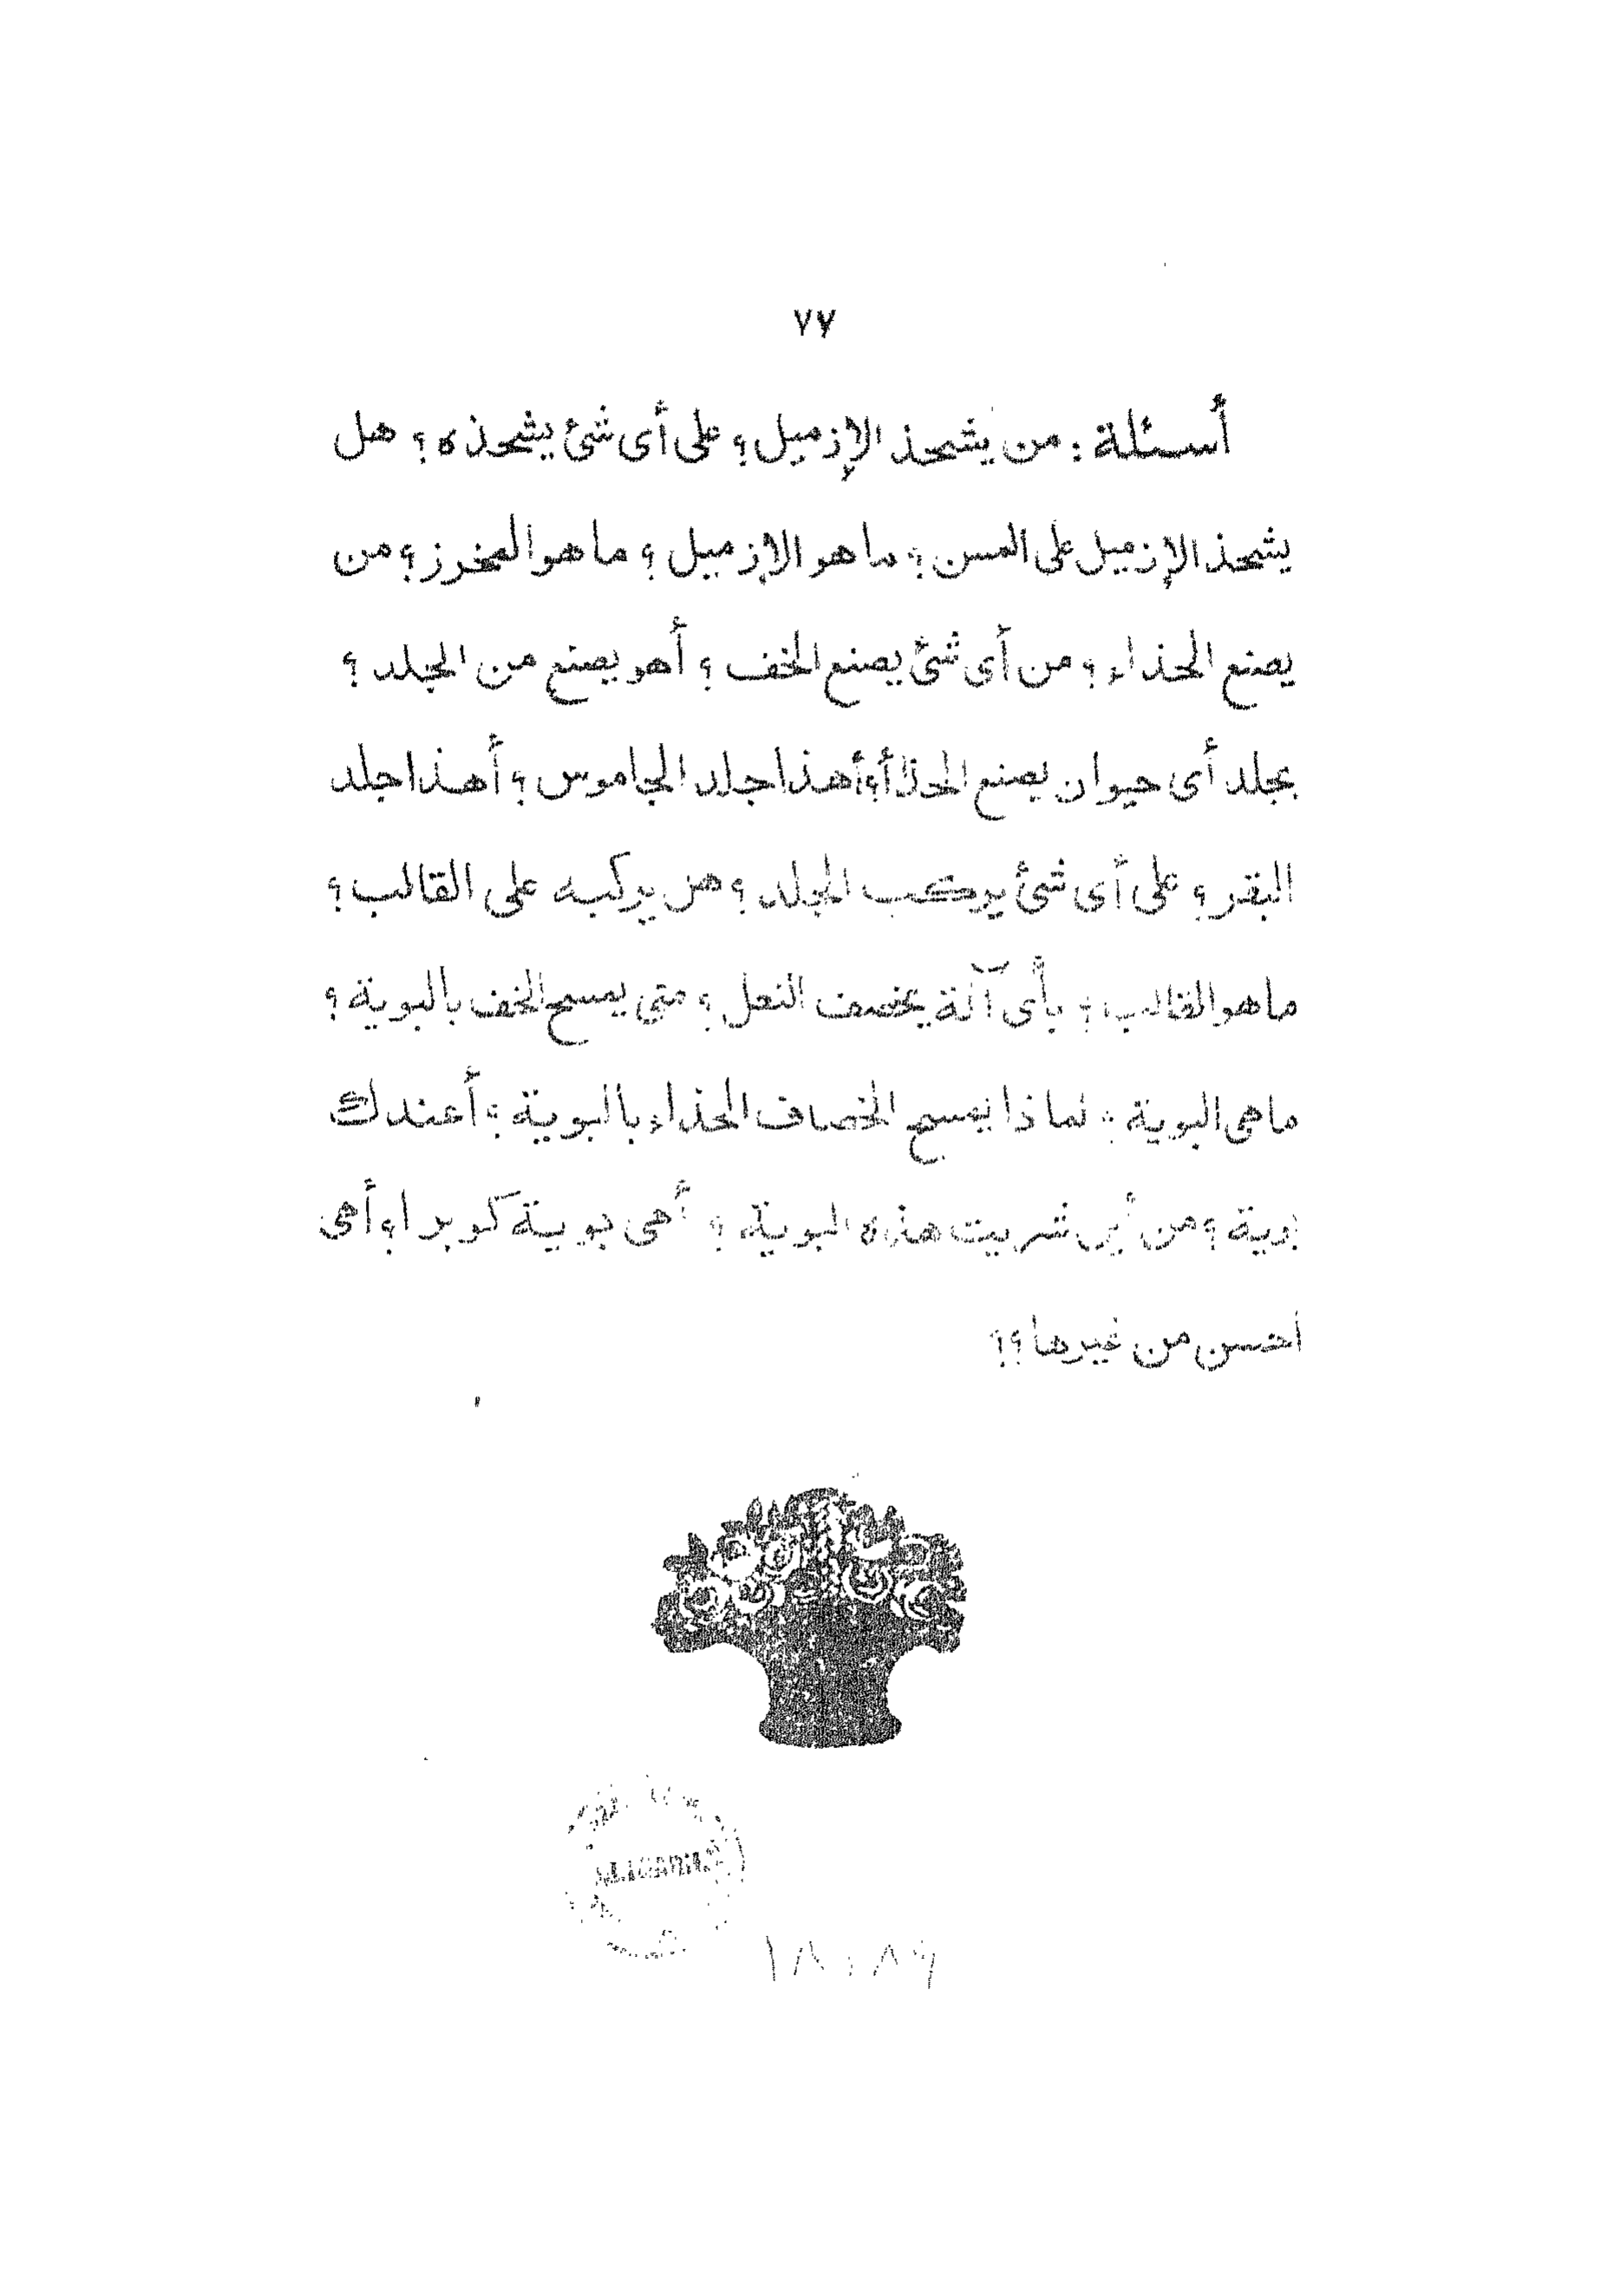 ٧٧
أسئلة : من يشحذ الإزميل؟ على أى شئ يشحذه؟ هل
يشحذ الإزميل على المسن؟ ما هو الإزميل؟ ما هو المخرز؟ من
يصنع الحذاء؟ من أى شئ يصنع الخف؟ أهو يصنع من الجلد؟
بجلد أى حيوان يصنع الحذاأ؟ أهذا جلد الجاموس؟ أهذا جلد
البقر؟ على أى شئ يركب الجلد؟ هل يركبه على القالب؟
ما هو القالب؟ بأى آلة يخصف النعل؟ متى يمسح الخف بالبوية؟
ماهى البوية؟ لماذا يمسح الخصاف الحذاء بالبوية؟ أعندك
بوية؟ من أين شريت هذه البوية؟ أهى بوية كوبرا؟ أهى
احسن من غيرها؟؟
١٨٠٨٩